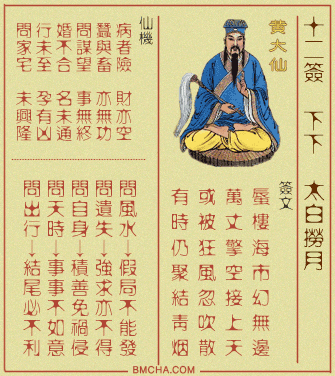 十二簽 下下 太白撈月
黃大仙
簽文
蜃樓海市幻無邊
萬丈擎空接上天
或被狂風忽吹散
有時仍聚結青烟
仙機
病者險 財亦空
蠶與畜 亦無功
問謀望 事無終
婚不合 名未通
行未至 孕有凶
問家宅 未興隆
問風水→假局不能發
問遺失→強求亦不得
問自身→積善免禍侵
問天時→事事不如意
問出行→結尾必不利
BMCHA.COM